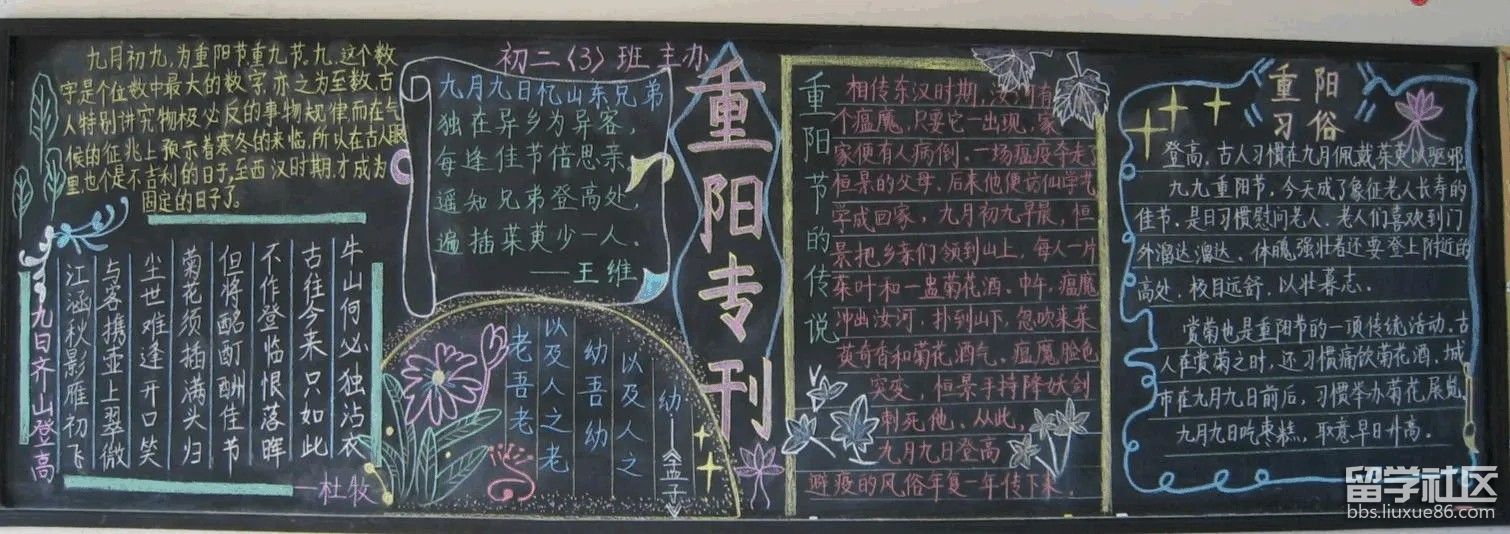 九月初九,为重阳节重九节。九,这个数
字是个位数中最大的数字,亦之为至数,古
人特别讲究物极必反的事物规律而在气
候的征兆上预示着寒冬的来临,所以在古人眼
里也个是不吉利的日子,至西汉时期,才成为
固定的日子了。
九日齐山登高
江涵秋影雁初飞
与客携壶上翠微
尘世难逢开口笑
菊花须插满头归
但将酩酊酬佳节
不作登临恨落晖
古往今来只如此
牛山何必独沾衣
—杜牧
初二〈3〉班主办
九月九日忆山东兄弟
独在异乡为异客,
每逢佳节倍思亲
遥知兄弟登高处,
遍插茱萸少一人。
——王维
老吾老
以及人之老
幼吾幼
以及人之
幼——《孟子》
重阳专刊
重阳节的传说
相传东汉时期,汝河有
个瘟魔,只要它一出现,家
家便有人病倒。一场瘟疫夺走了
恒景的父母。后来他便访仙学艺
学成回家。九月初九早晨,恒
景把乡亲们领到山上,每人一片
茱叶和一盅菊花酒。中午,瘟魔
冲出汝河,扑到山下,忽吹来茱
萸奇香和菊花酒气。瘟魔脸色
突变,恒景手持降妖剑
刺死他。从此,
九月九日登高
避疫的风俗年复一年传下来。
重阳
习俗
登高,古人习惯在九月佩戴茱萸以驱邪
九九重阳节,今天成了象征老人长寿的
佳节,是日习惯慰问老人。老人们喜欢到门
外溜达溜达。体魄强壮者还要登上附近的
高处,极目远舒,以壮暮志。
赏菊也是重阳节的一项传统活动。古
人在赏菊之时,还习惯痛饮菊花酒,城
市在九月九日前后,习惯举办菊花展览
九月九日吃枣糕,取意早日升高。
留学社区
bbs.liuxue86.com